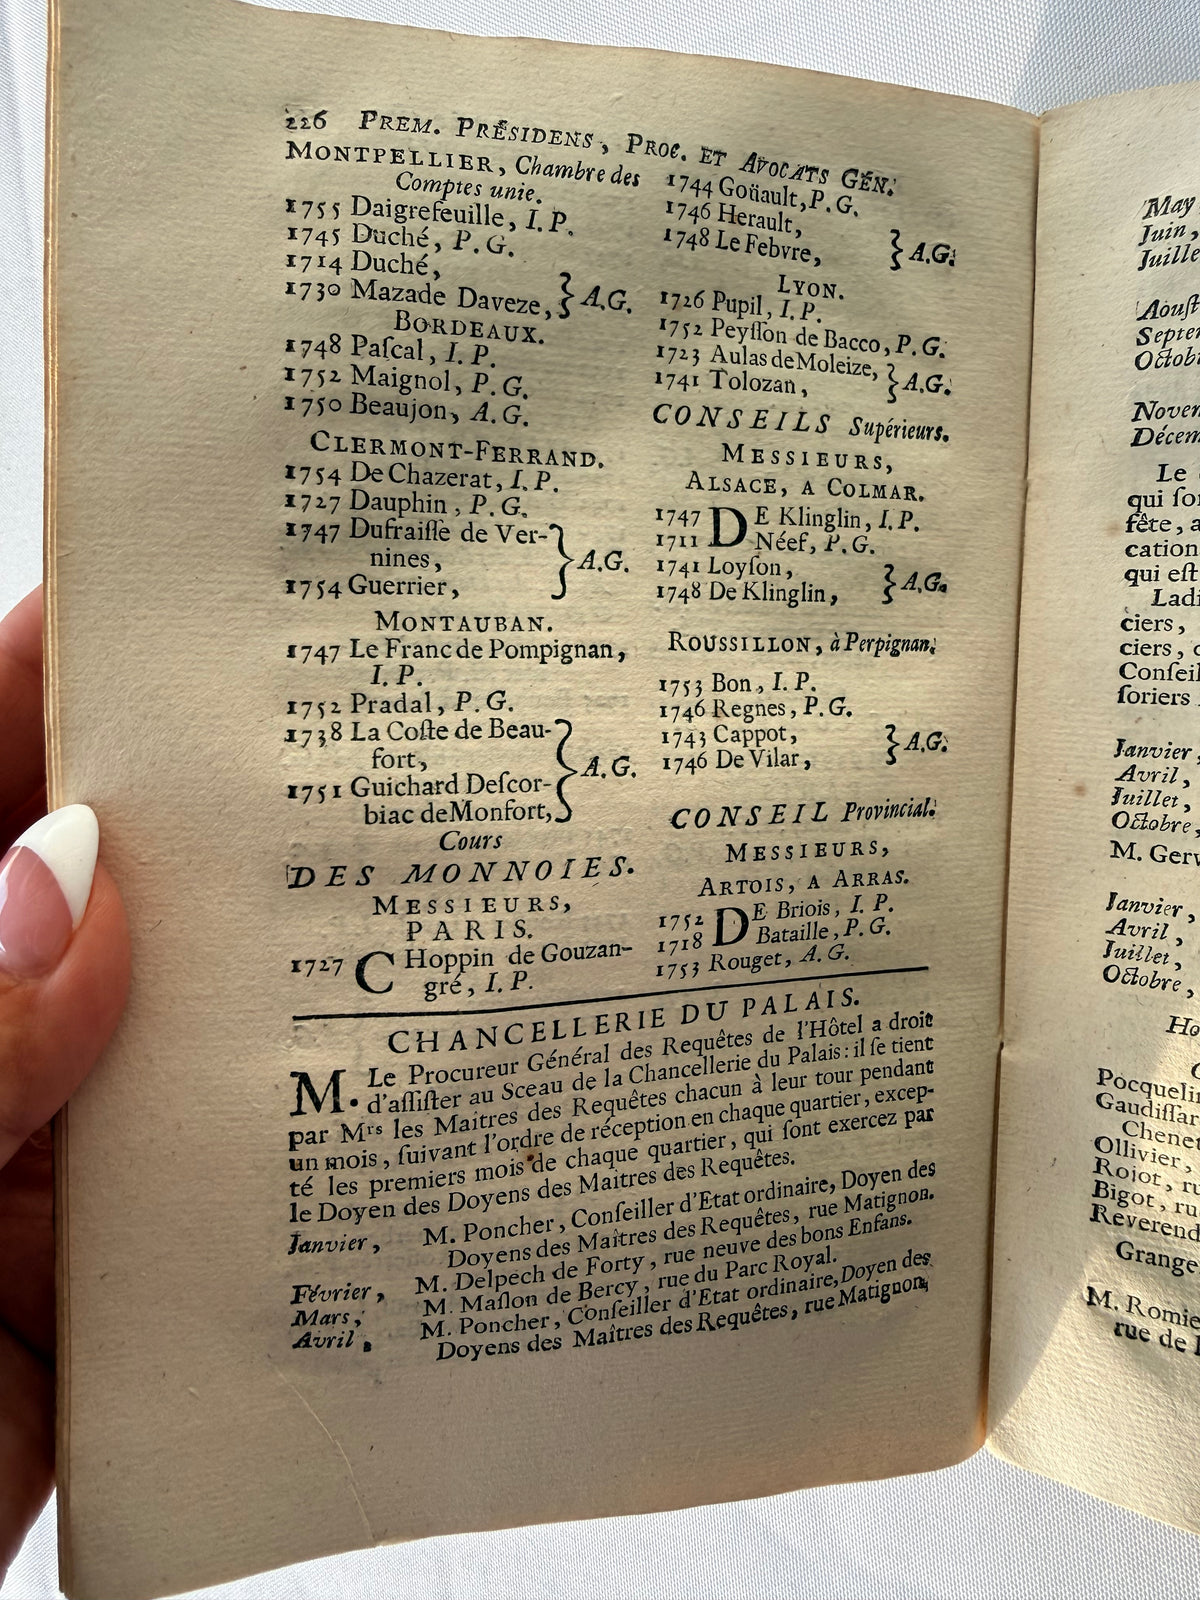 226 PREM. PRÉSIDENS, PROC. ET AVOCATS GÉN.
MONTPELLIER, Chambre des
Comptes unie.
1755 Daigrefeuille, I. P.
1745 Duché, P. G.
1714 Duché,
1730 Mazade Daveze, } A.G.
BORDEAUX.
1748 Paſcal, I. P.
1752 Maignol, P. G.
1750 Beaujon, A. G.
CLERMONT-FERRAND.
1754 De Chazerat, I. P.
1727 Dauphin, P. G.
1747 Dufraiſſe de Ver-
nines, } A.G.
1754 Guerrier,
MONTAUBAN.
1747 Le Franc de Pompignan,
I. P.
1752 Pradal, P. G.
1738 La Coſte de Beau-
fort,
} A.G.
1751 Guichard Deſcor-
biac de Monfort,
Cours
DES MONNOIES.
MESSIEURS,
PARIS.
1727 CHoppin de Gouzan-
gré, I. P.
1744 Goüault, P. G.
1746 Herault,
1748 Le Febvre, } A.G.
LYON.
1726 Pupil, I. P.
1752 Peyſſon de Bacco, P. G.
1723 Aulas de Moleize,
1741 Tolozan, } A.G.
CONSEILS Supérieurs.
MESSIEURS,
ALSACE, A COLMAR.
1747 DE Klinglin, I. P.
1711 Néef, P. G.
1741 Loyſon,
1748 De Klinglin, } A.G.
ROUSSILLON, à Perpignan.
1753 Bon, I. P.
1746 Regnes, P. G.
1743 Cappot,
1746 De Vilar, } A.G.
CONSEIL Provincial.
MESSIEURS,
ARTOIS, A ARRAS.
1752 DE Briois, I. P.
1718 Bataille, P. G.
1753 Rouget, A. G.
CHANCELLERIE DU PALAIS.
M. Le Procureur Général des Requêtes de l'Hôtel a droit
d'aſſiſter au Sceau de la Chancellerie du Palais: il ſe tient
par Mrs les Maitres des Requêtes chacun à leur tour pendant
un mois, ſuivant l'ordre de réception en chaque quartier, excep-
té les premiers mois de chaque quartier, qui ſont exercez par
le Doyen des Doyens des Maitres des Requêtes.
Janvier, M. Poncher, Conſeiller d'Etat ordinaire, Doyen des
Doyens des Maîtres des Requêtes, rue Matignon.
Février, M. Delpech de Forty, rue neuve des bons Enfans.
Mars, M. Maſlon de Bercy, rue du Parc Royal.
Avril, M. Poncher, Conſeiller d'Etat ordinaire, Doyen des
Doyens des Maîtres des Requêtes, rue Matignon,
May
Juin,
Juille
Aouſt
Septem
Octob
Novem
Décem
Le
qui ſon
fête, a
cation
qui eſt
Ladi
ciers,
ciers,
Conſeil
ſoriers
Janvier,
Avril,
Juillet,
Octobre,
M. Gerv
Janvier,
Avril,
Juillet,
Octobre,
Ho
Pocquelin
Gaudiſſar
Chenet
Ollivier,
Rojot, ru
Bigot, ru
Reverend
Grange
M. Romie
rue de